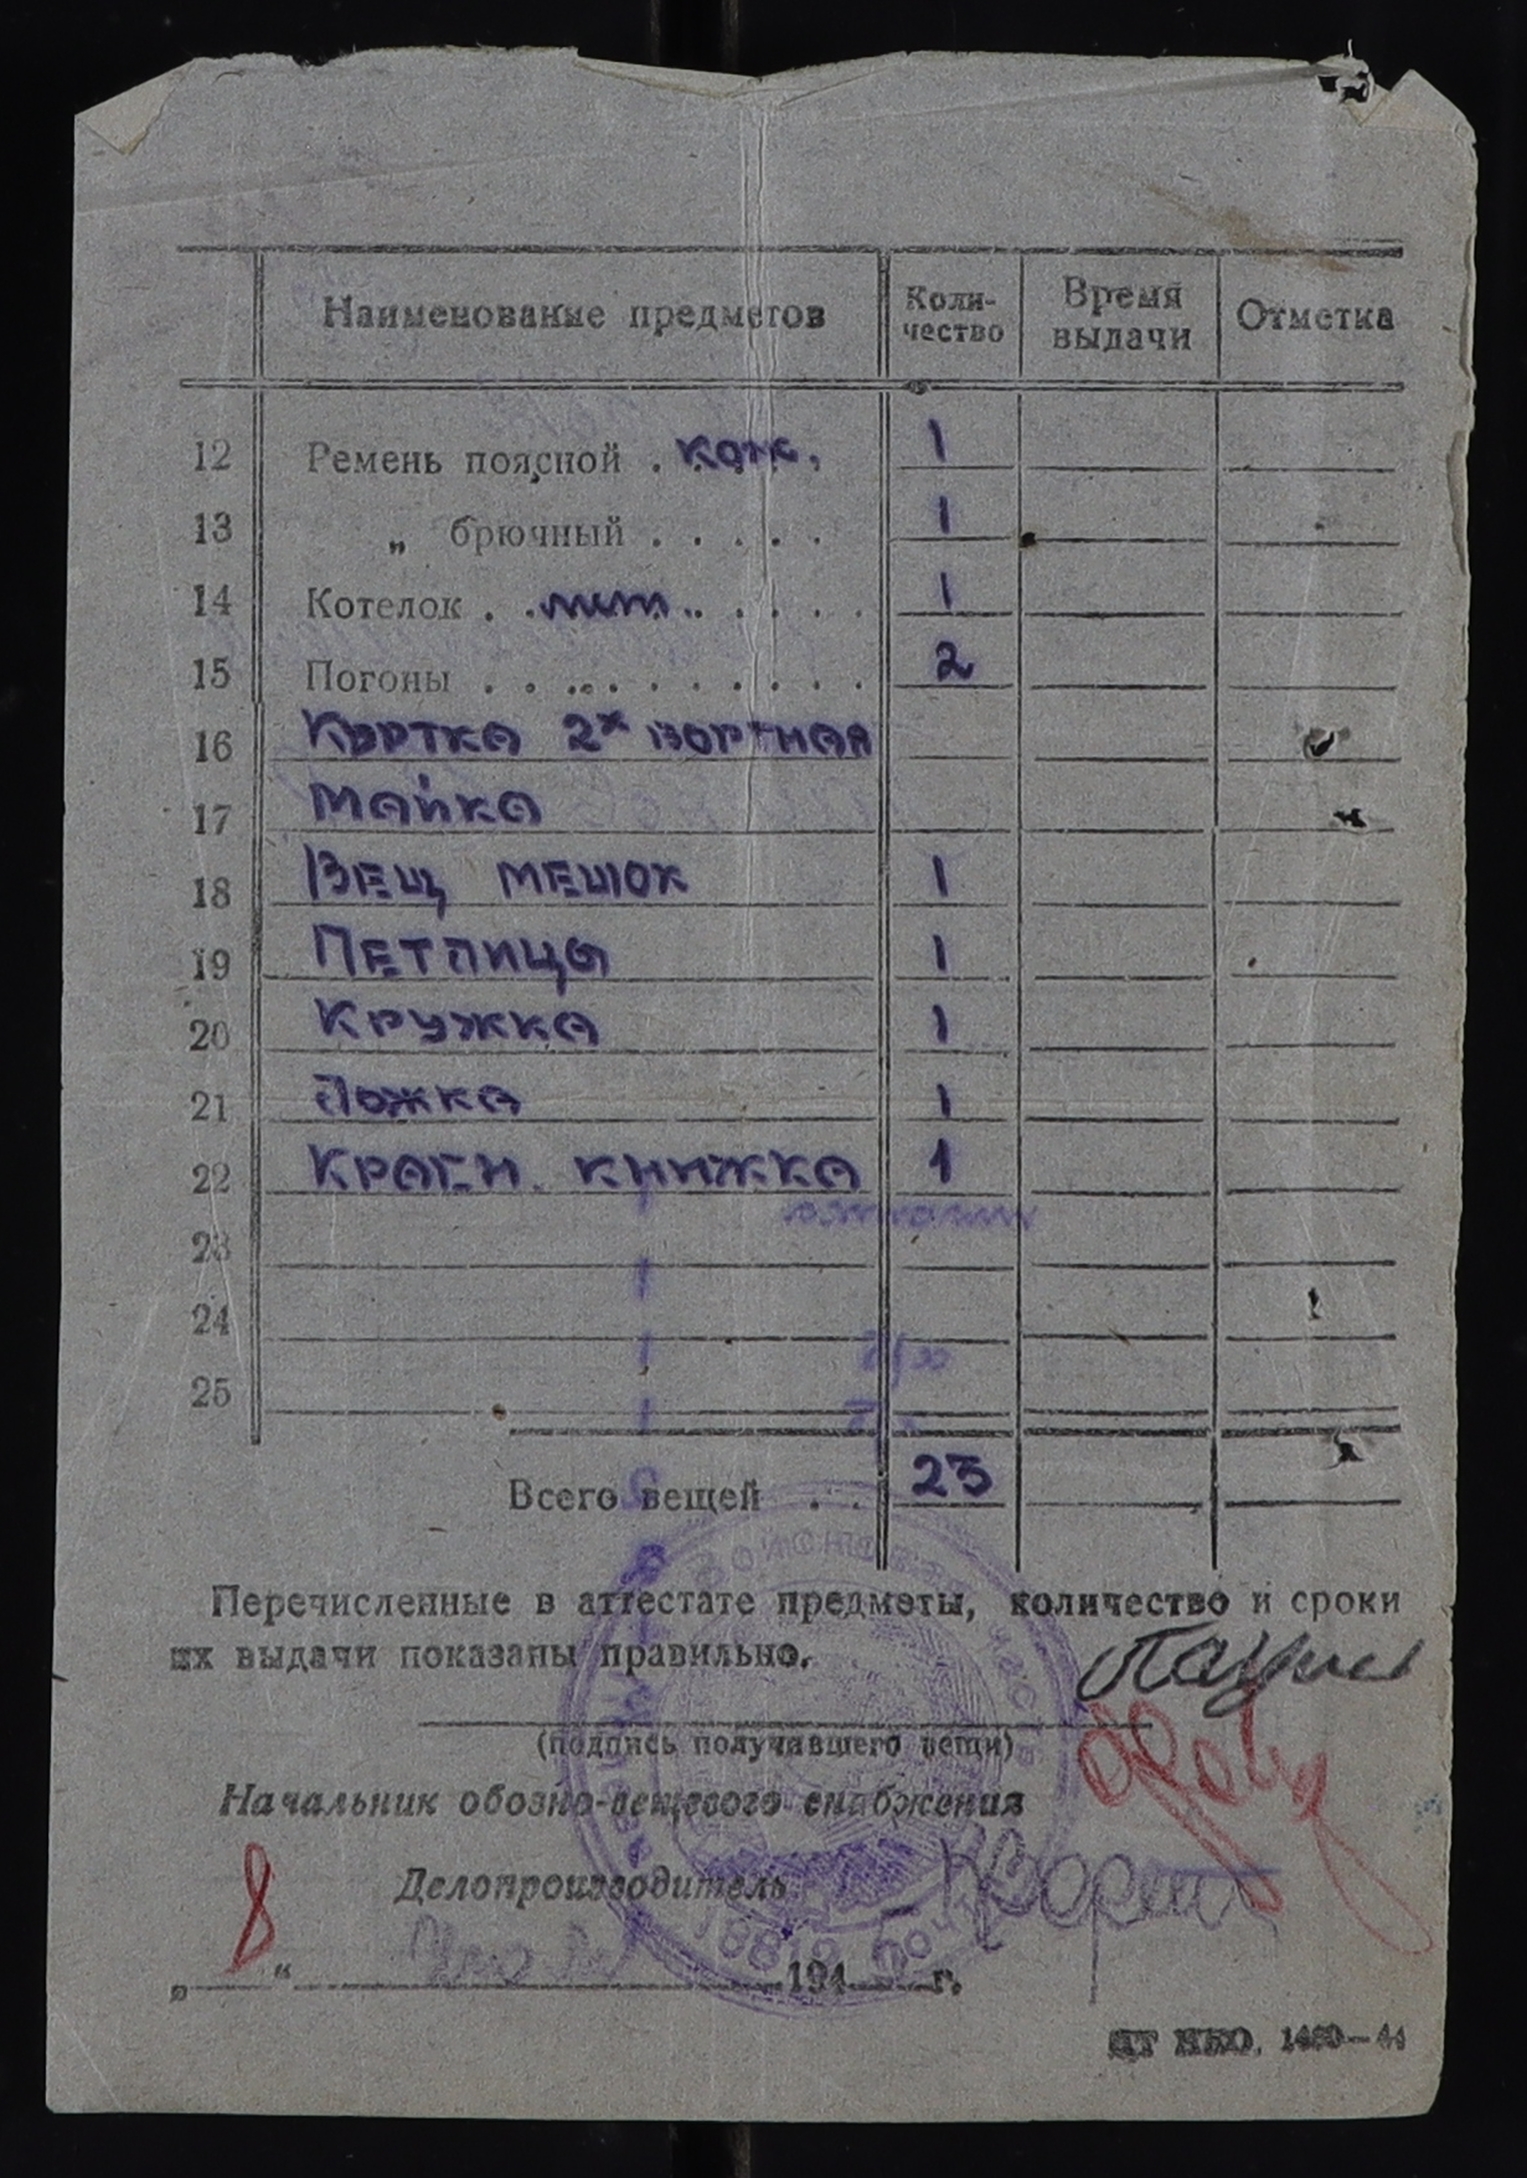 Наименование предметов Коли-чество Время выдачи Отметка
12 Ремень поясной . кож. 1
13 „ брючный . . . . . 1
14 Котелок . . мет. . . . . . 1
15 Погоны . . . . . . . . . . 2
16 Куртка 2х бортная
17 Майка
18 Вещ мешок 1
19 Петлицы 1
20 Кружка 1
21 Ложка 1
22 Красн. книжка 1
23
24
25
Всего вещей . . 23
Перечисленные в аттестате предметы, количество и сроки
их выдачи показаны правильно.
(подпись получившего вещи)
Начальник обозно-вещевого снабжения
Делопроизводитель
„ 8 “ 194 г.
ЦТ НКО. 1480—44